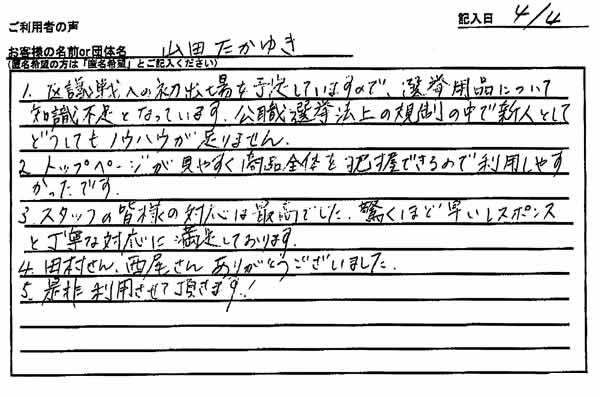 ご利用者の声
記入日 4/4
お客様の名前or団体名 山田たかゆき
(匿名希望の方は「匿名希望」とご記入ください)
1. 区議戦への初出場を予定していますので、選挙用品について
知識不足となっています。公職選挙法上の規制の中で新人として
どうしてもノウハウが足りません.
2. トップページが見やすく商品全体を把握できるので利用しやす
かったです.
3. スタッフの皆様の対応は最高でした. 驚くほど早いレスポンス
と丁寧な対応に満足しております.
4. 田村さん、西尾さん ありがとうございました.
5. 是非利用させて頂きます!